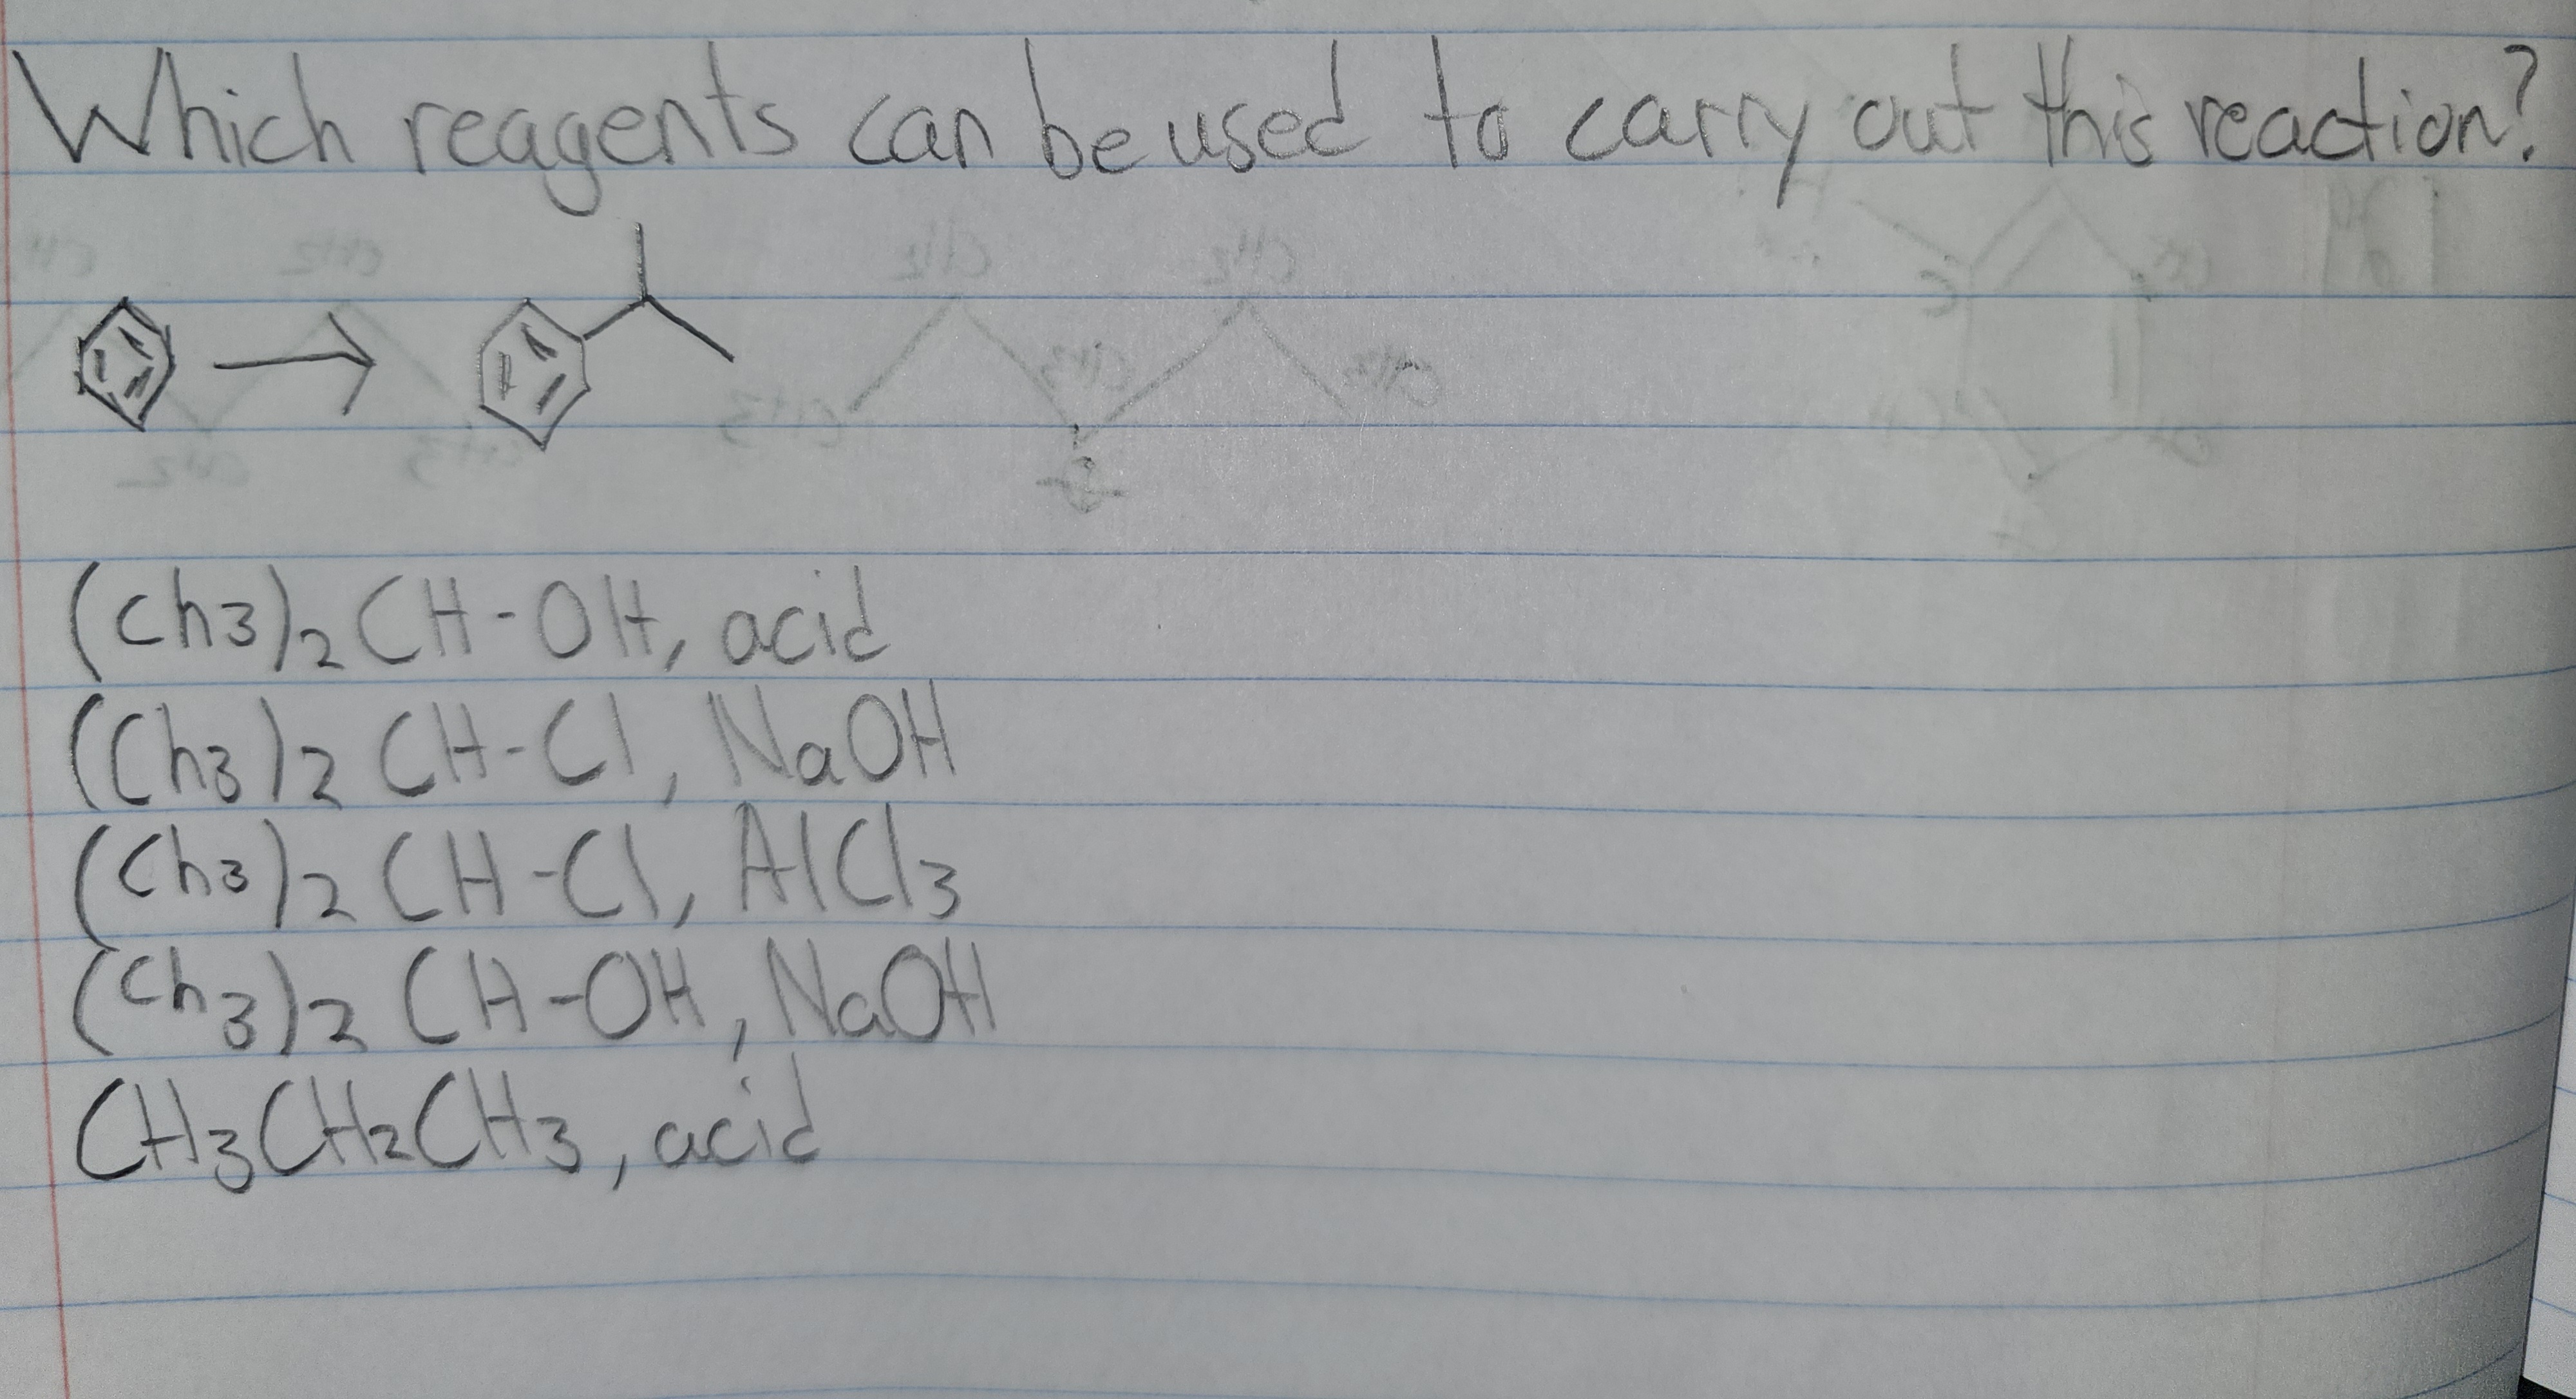 Which reagents can be used to carry out this reaction?
(Ch3)2 CH-OH, acid
(Ch3)2 CH-Cl, NaOH
(Ch3)2 CH-Cl, AlCl3
(Ch3)2 CH-OH, NaOH
CH3CH2CH3, acid